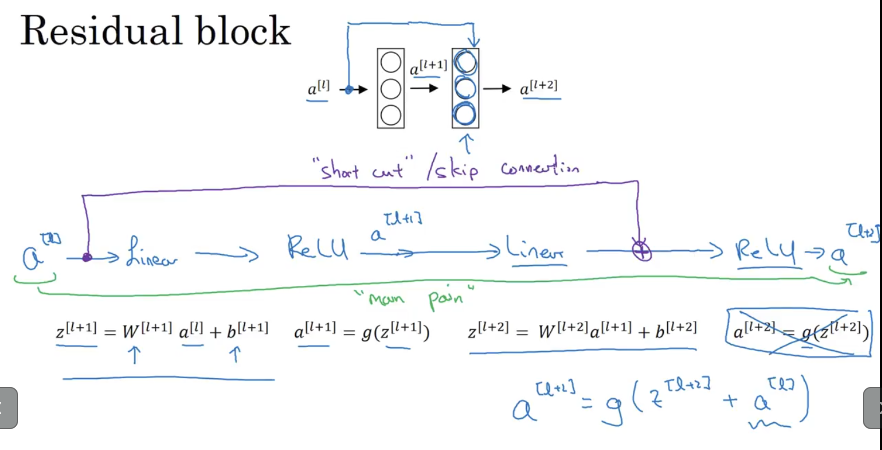 Residual block
a^[l] a^[l+1] a^[l+2]
"short cut" / skip connection
a^[l] → Linear → ReLU a^[l+1] → Linear → ReLU → a^[l+2]
"main path"
z^[l+1] = W^[l+1] a^[l] + b^[l+1] a^[l+1] = g(z^[l+1]) z^[l+2] = W^[l+2] a^[l+1] + b^[l+2] a^[l+2] = g(z^[l+2])
a^[l+2] = g(z^[l+2] + a^[l])